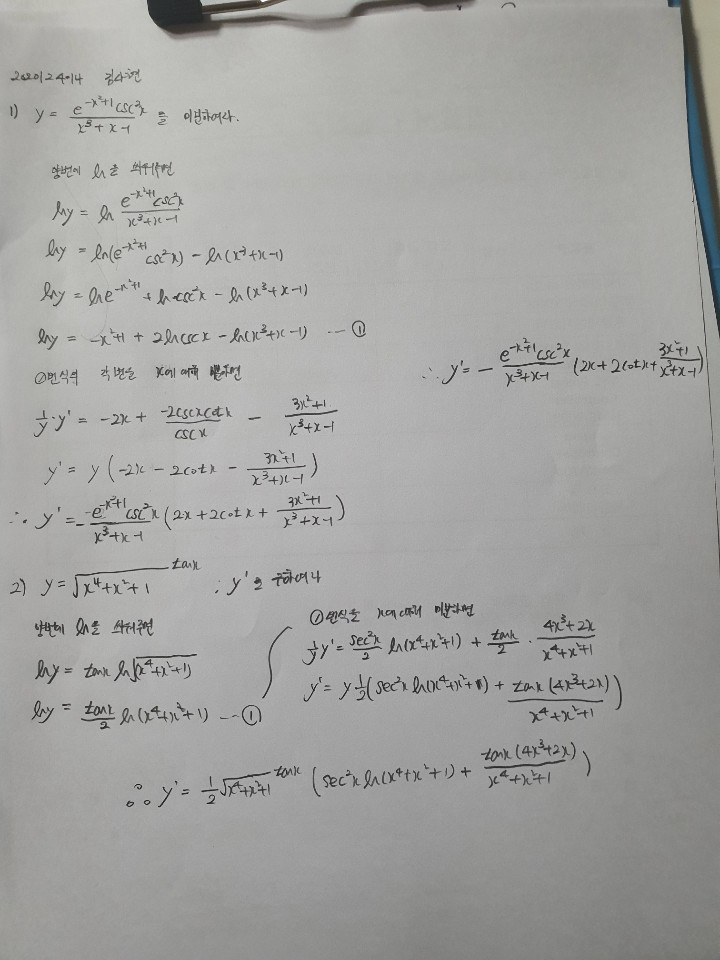 2020124014 김수현
1) y = \frac{e^{-x^2+1} csc^2x}{x^3+x-1} 을 미분하여라.
양변에 ln을 씌워주면
lny = ln \frac{e^{-x^2+1} csc^2x}{x^3+x-1}
lny = ln(e^{-x^2+1} csc^2x) - ln(x^3+x-1)
lny = lne^{-x^2+1} + lncsc^2x - ln(x^3+x-1)
lny = -x^2+1 + 2lncscx - ln(x^3+x-1) --- ①
①번식의 각변을 x에 대해 미분하면
\frac{1}{y}·y' = -2x + \frac{-2cscxcotx}{cscx} - \frac{3x^2+1}{x^3+x-1}
y' = y(-2x - 2cotx - \frac{3x^2+1}{x^3+x-1})
∴ y' = -\frac{e^{-x^2+1} csc^2x}{x^3+x-1} (2x+2cotx + \frac{3x^2+1}{x^3+x-1})
∴ y' = - \frac{e^{-x^2+1} csc^2x}{x^3+x-1} (2x+2cotx+\frac{3x^2+1}{x^3+x-1})
2) y = \sqrt{x^4+x^2+1}^{tanx} ; y'을 구하여라
양변에 ln을 씌워주면
lny = tanx ln\sqrt{(x^4+x^2+1)}
lny = \frac{tanx}{2} ln(x^4+x^2+1) --- ①
①번식을 x에 대해 미분하면
\frac{1}{y}y' = \frac{sec^2x}{2} ln(x^4+x^2+1) + \frac{tanx}{2} · \frac{4x^3+2x}{x^4+x^2+1}
y' = y\frac{1}{2}(sec^2x ln(x^4+x^2+1) + \frac{tanx(4x^3+2x)}{x^4+x^2+1})
∴ y' = \frac{1}{2}\sqrt{x^4+x^2+1}^{tanx} (sec^2x ln(x^4+x^2+1) + \frac{tanx(4x^3+2x)}{x^4+x^2+1})